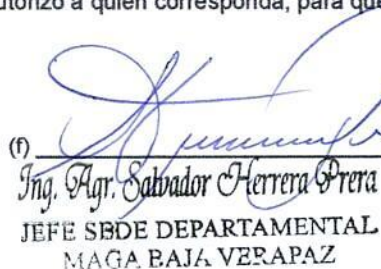 utorizo a quien corresponda, para qu
(f)
Ing. Agr. Salvador Herrera Prera
JEFE SEDE DEPARTAMENTAL
MAGA BAJA VERAPAZ